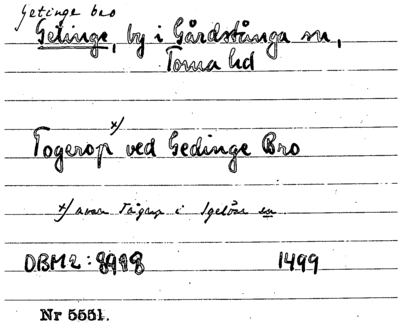 Getinge bro
Getinge, by i Gårdstånga sn,
Torna hd
Togerop x) ved Gedinge Bro
x) avser Tågarp i Igelösa sn
DBM2: 8988 1499
Nr 5551.